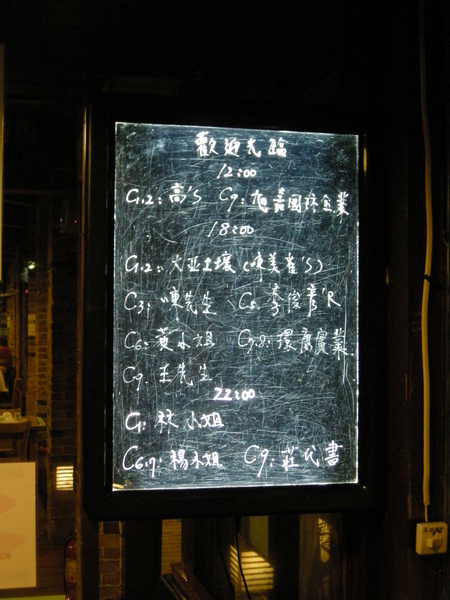 歡迎光臨
12:00
G.2: 高'S C9: 旭嘉國際企業
18:00
G.2: 大亚土壤(陳美雀'S)
C3: 陳先生 C5: 李俊彥'R
C6: 黃小姐 C7.8: 環康實業
C9: 王先生
22:00
G: 林小姐
C6.7: 楊小姐 C9: 莊代書